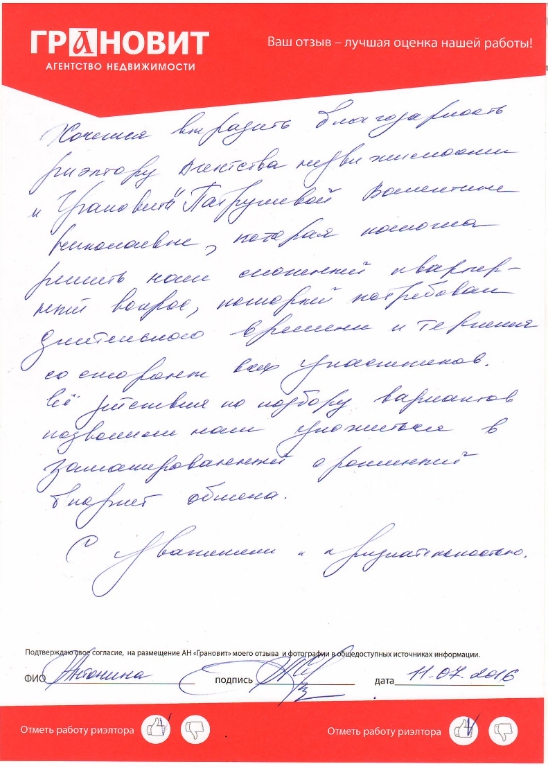 ГРАНОВИТ
АГЕНТСТВО НЕДВИЖИМОСТИ
Ваш отзыв – лучшая оценка нашей работы!
Хочется выразить благодарность
риэлтору Агентства недвижимости
"Грановит" Патрушевой Валентине
Николаевне, которая помогла
решить наш сложный квартир-
ный вопрос, который потребовал
длительного времени и терпения
со стороны всех участников.
Всё действия по подбору вариантов
позволили нам уложиться в
запланированный
бюджет обмена.
С уважением и признательностью.
Подтверждаю свое согласие, на размещение АН «Грановит» моего отзыва и фотографии в общедоступных источниках информации.
ФИО Антонина подпись дата 11.07.2016
Отметь работу риэлтора Отметь работу риэлтора